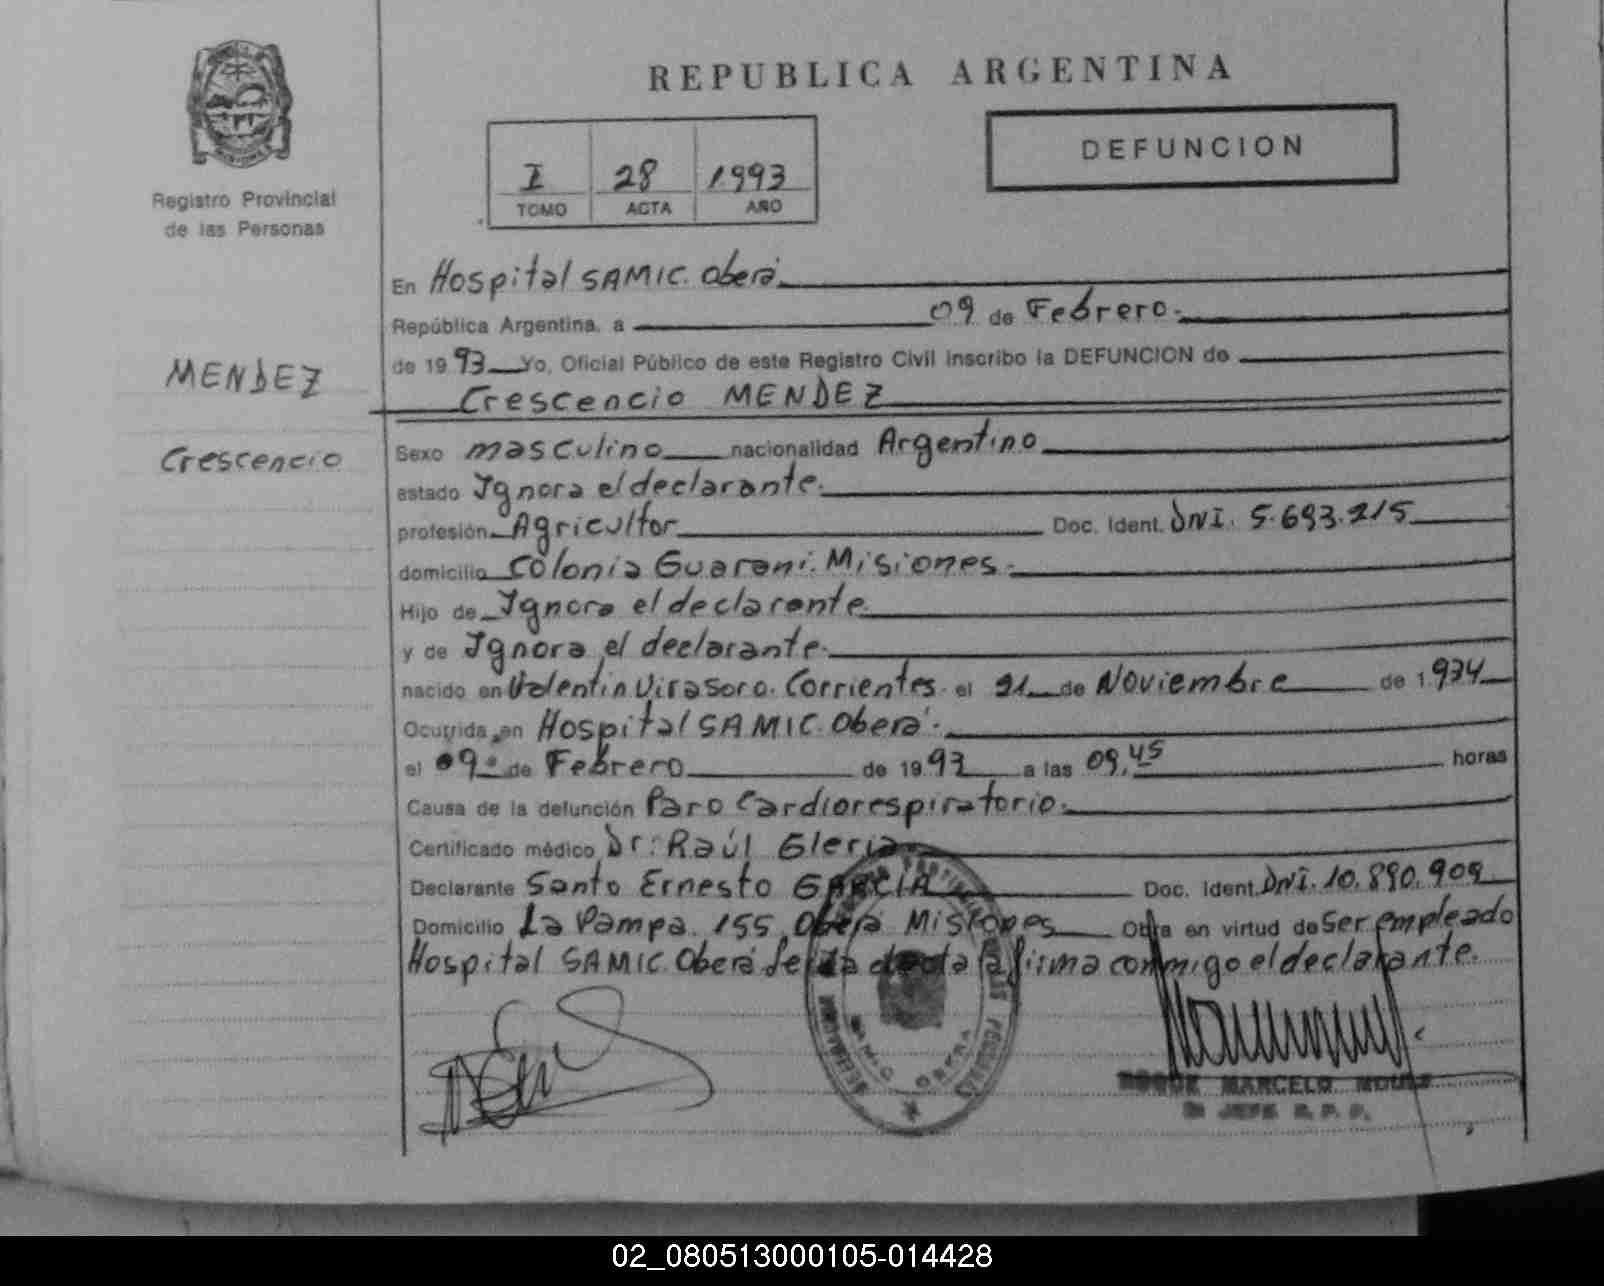 REPUBLICA ARGENTINA
DEFUNCION
I 28 1993
TOMO ACTA AÑO
Registro Provincial
de las Personas
MENDEZ
Crescencio
En Hospital SAMIC. Oberá.
República Argentina, a 09 de Febrero.
de 1993 Yo, Oficial Público de este Registro Civil inscribo la DEFUNCION de
Crescencio MENDEZ
Sexo masculino nacionalidad Argentino
estado Ignora el declarante.
profesión Agricultor Doc. Ident. DNI. 5.693.215
domicilio Colonia Guaraní. Misiones.
Hijo de Ignora el declarante.
y de Ignora el declarante.
nacido en Valentin Virasoro. Corrientes. el 21 de Noviembre de 1.934
Ocurrida en Hospital SAMIC. Oberá.
el 09 de Febrero de 1993 a las 09,45 horas
Causa de la defunción Paro Cardiorespiratorio.
Certificado médico Dr: Raúl Gleria
Declarante Santo Ernesto GARCIA Doc. Ident. DNI. 10.890.909
Domicilio La Pampa. 155. Oberá Misiones Obra en virtud de ser empleado
Hospital SAMIC. Oberá Leída el acta la firma conmigo el declarante.
MARCELO
JEFE R. P. P.
02_080513000105-014428